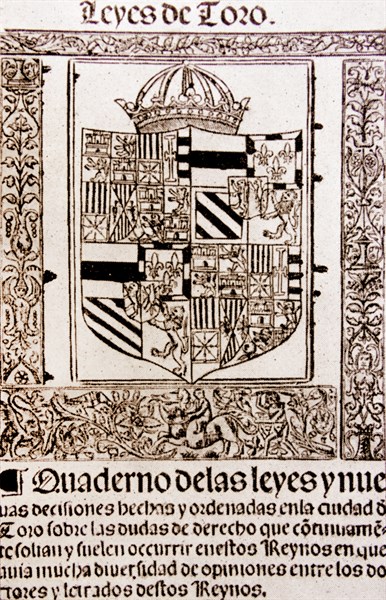 Leyes de Toro.
¶ Quaderno delas leyes y nue
uas decisiones hechas y ordenadas enla ciudad d̄
Toro sobre las dudas de derecho que cõtinuamẽ-
te solian y suelen occurrir enestos Reynos en que
auia mucha diuersidad de opiniones entre los do
ctores y letrados destos Reynos.